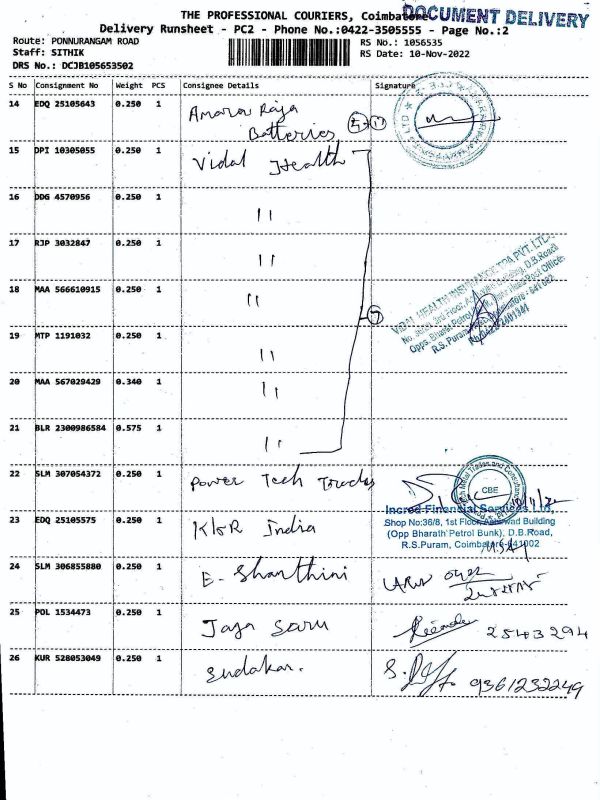 THE PROFESSIONAL COURIERS, Coimbatore
DOCUMENT DELIVERY
Delivery Runsheet - PC2 - Phone No.:0422-3505555 - Page No.:2
Route: PONNURANGAM ROAD
RS No.: 1056535
Staff: SITHIK
RS Date: 10-Nov-2022
DRS No.: DCJB105653502
S No Consignment No Weight PCS Consignee Details Signature
14 EDQ 25105643 0.250 1 Amara Raja
Batteries
15 DPI 10305055 0.250 1 Vidal Health
16 DDG 4570956 0.250 1 "
17 RJP 3032847 0.250 1 "
18 MAA 566610915 0.250 1 "
19 MTP 1191032 0.250 1 "
20 MAA 567029429 0.340 1 "
21 BLR 2300986584 0.575 1 "
VIDAL HEALTH INSURANCE TPA PVT. LTD.
R.S. Puram
22 SLM 307054372 0.250 1 Power Tech Trades
CBE
Incred Financial Services Ltd,
Shop No:36/8, 1st Floor, Building
(Opp Bharath Petrol Bunk), D.B.Road,
R.S.Puram, Coimbatore-641002
23 EDQ 25105575 0.250 1 K&R India
24 SLM 306855880 0.250 1 E. Shanthini
25 POL 1534473 0.250 1 Jaya Saru
2543294
26 KUR 528053049 0.250 1 Sudakar.
9361232249